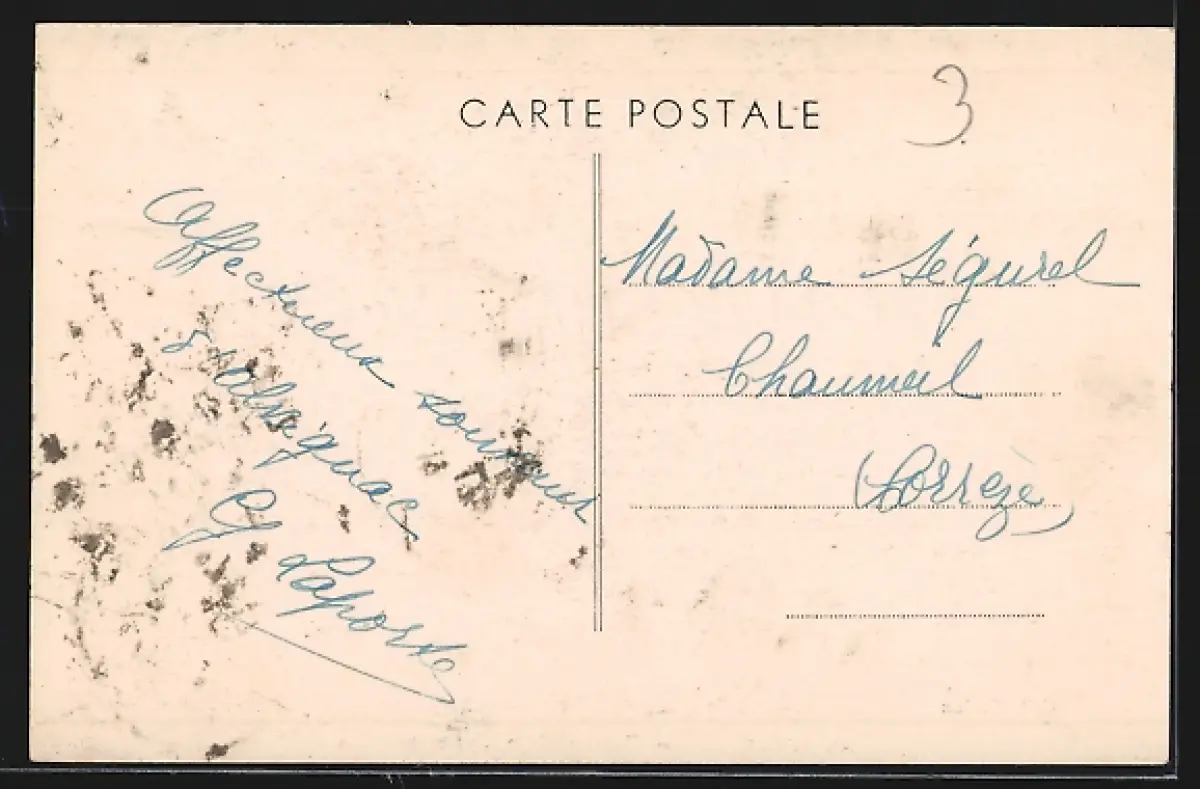 CARTE POSTALE
3
Affectueux souvenir
d'Objat
G Laporte
Madame Ségurel
Chaumeil
(Corrèze)